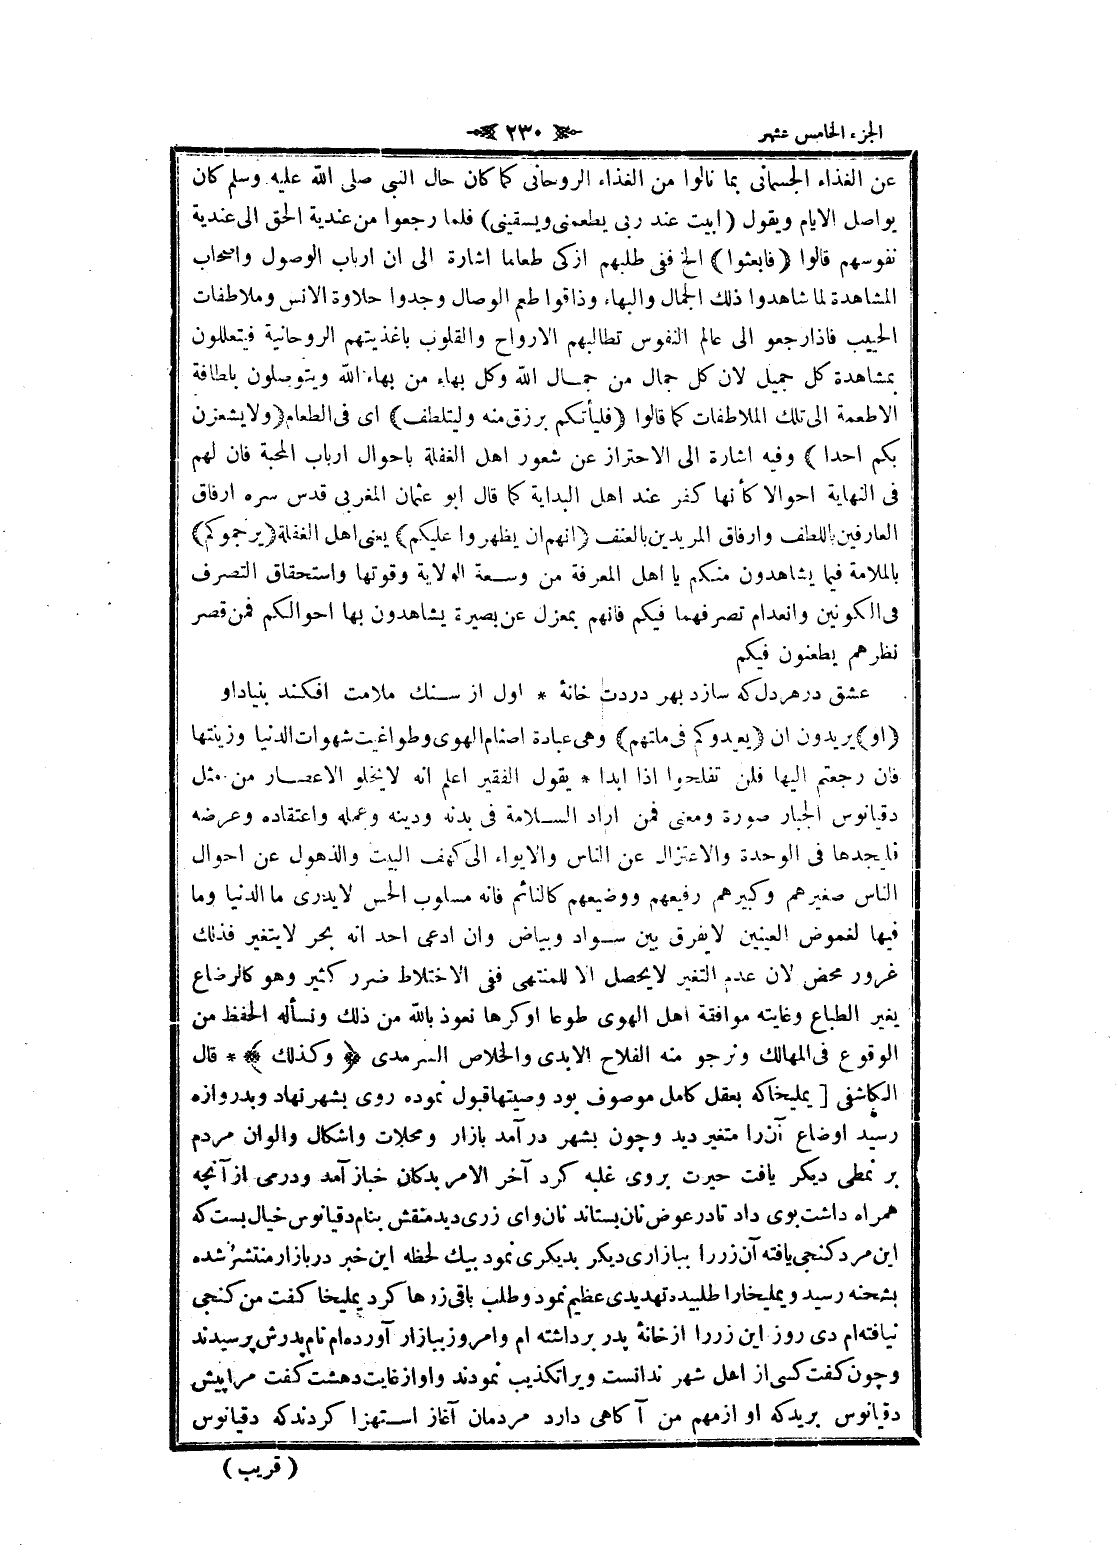 الجزء الخامس عشر
٢٣٠
عن الغذاء الجسمانى بما نالوا من الغذاء الروحانى كما كان حال النبى صلى الله عليه وسلم كان
يواصل الايام ويقول (ابيت عند ربى يطعمنى ويسقينى) فلما رجعوا من عندية الحق الى عندية
نفوسهم قالوا (فابعثوا) الخ ففى طلبهم ازكى طعاما اشارة الى ان ارباب الوصول واصحاب
المشاهدة لما شاهدوا ذلك الجمال والبهاء وذاقوا طعم الوصال وجدوا حلاوة الانس وملاطفات
الحبيب فاذا رجعو الى عالم النفوس تطالبهم الارواح والقلوب باغذيتهم الروحانية فيتعللون
بمشاهدة كل جميل لان كل جمال من جمال الله وكل بهاء من بهاء الله ويتوصلون بلطافة
الاطعمة الى تلك الملاطفات كما قالوا (فليأتكم برزق منه وليتلطف) اى فى الطعام (ولا يشعرن
بكم احدا) وفيه اشارة الى الاحتراز عن شعور اهل الغفلة باحوال ارباب المحبة فان لهم
فى النهاية احوالا كأنها كفر عند اهل البداية كما قال ابو عثمان المغربى قدس سره ارفاق
العارفين باللطف وارفاق المريدين بالعنف (انهم ان يظهروا عليكم) يعنى اهل الغفلة (يرجموكم)
بالملامة فيما يشاهدون منكم يا اهل المعرفة من وسعة الولاية وقوتها واستحقاق التصرف
فى الكونين وانعدام تصرفهما فيكم فانهم بمعزل عن بصيرة يشاهدون بها احوالكم فمن قصر
نظرهم يطعنون فيكم
عشق در هر دل كه سازد بهر دردت خانۀ * اول از سنك ملامت افكند بنياد او
(او) يريدون ان (يعيدوكم فى ملتهم) وهى عبادة اصنام الهوى وطواغيت شهوات الدنيا وزينتها
فان رجعتم اليها فلن تفلحوا اذا ابدا * يقول الفقير اعلم انه لا يخلو الاعصار من مثل
دقيانوس الجبار صورة ومعنى فمن اراد السلامة فى بدنه ودينه وعمله واعتقاده وعرضه
فليجدها فى الوحدة والاعتزال عن الناس والايواء الى كهف البيت والذهول عن احوال
الناس صغيرهم وكبيرهم رفيعهم ووضيعهم كالنائم فانه مسلوب الحس لا يدرى ما الدنيا وما
فيها لغموض العينين لا يفرق بين سواد وبياض وان ادعى احد انه بحر لا يتغير فذلك
غرور محض لان عدم التغير لا يحصل الا للمنتهى ففى الاختلاط ضرر كثير وهو كالرضاع
يغير الطباع وغايته موافقة اهل الهوى طوعا او كرها نعوذ بالله من ذلك ونسأله الحفظ من
الوقوع فى المهالك ونرجو منه الفلاح الابدى والخلاص السرمدى ﴿ وكذلك ﴾ * قال
الكاشفى [ يمليخا كه بعقل كامل موصوف بود وصيتها قبول نموده روى بشهر نهاد وبدروازه
رسيد اوضاع آن را متغير ديد وچون بشهر درآمد بازار ومحلات واشكال والوان مردم
بر نمطى ديكر يافت حيرت بروى غلبه كرد آخر الامر بدكان خباز آمد ودرمى از آنچه
همراه داشت بوى داد تا در عوض نان بستاند نانواى زرى ديد منقش بنام دقيانوس خيال بست كه
اين مرد كنجى يافته آن زر را ببازارى ديكر بديكرى نمود بيك لحظه اين خبر در بازار منتشر شده
بشحنه رسيد ويمليخا را طلبيده تهديدى عظيم نمود وطلب باقى زرها كرد يمليخا كفت من كنجى
نيافته ام دى روز اين زر را از خانۀ پدر برداشته ام وامروز ببازار آورده ام نام پدرش پرسيدند
وچون كفت كسى از اهل شهر ندانست ويرا تكذيب نمودند واو از غايت دهشت كفت مرا پيش
دقيانوس بريد كه او از مهم من آكاهى دارد مردمان آغاز استهزا كردند كه دقيانوس
( قريب )